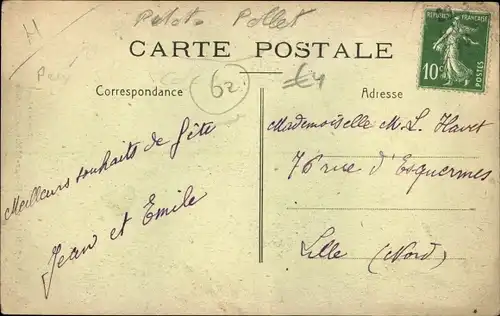 Pollet
CARTE POSTALE
62
£4
Correspondance
Adresse
REPUBLIQUE FRANÇAISE
10c
POSTES
Meilleurs souhaits de fête
Jean et Emile
Mademoiselle M. L. Havet
76 rue d'Esquermes
Lille (Nord)